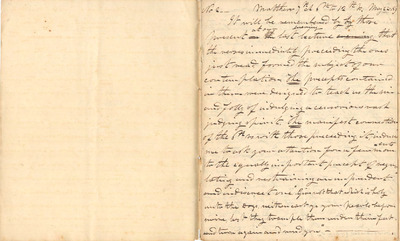 No 2. Matthew 7th Ch 6th to 12th vs.
It will be remembered by those
present at the last lecture that
the verses immediately preceding the ones
just read formed the subject of our
contemplation. The precepts contained
in them were designed to teach us the sin
and folly of indulging a censorious rash
judging spirit. The manifest connection
of the 6th vs with those preceding it induces
me to ask your attention for a few moments
to the equally important precept of
and restraining an imprudent
and indiscreet one. Give not that which is holy
unto the dogs neither cast ye your pearls before
swine lest they trample them under their feet
and turn again and rend you —